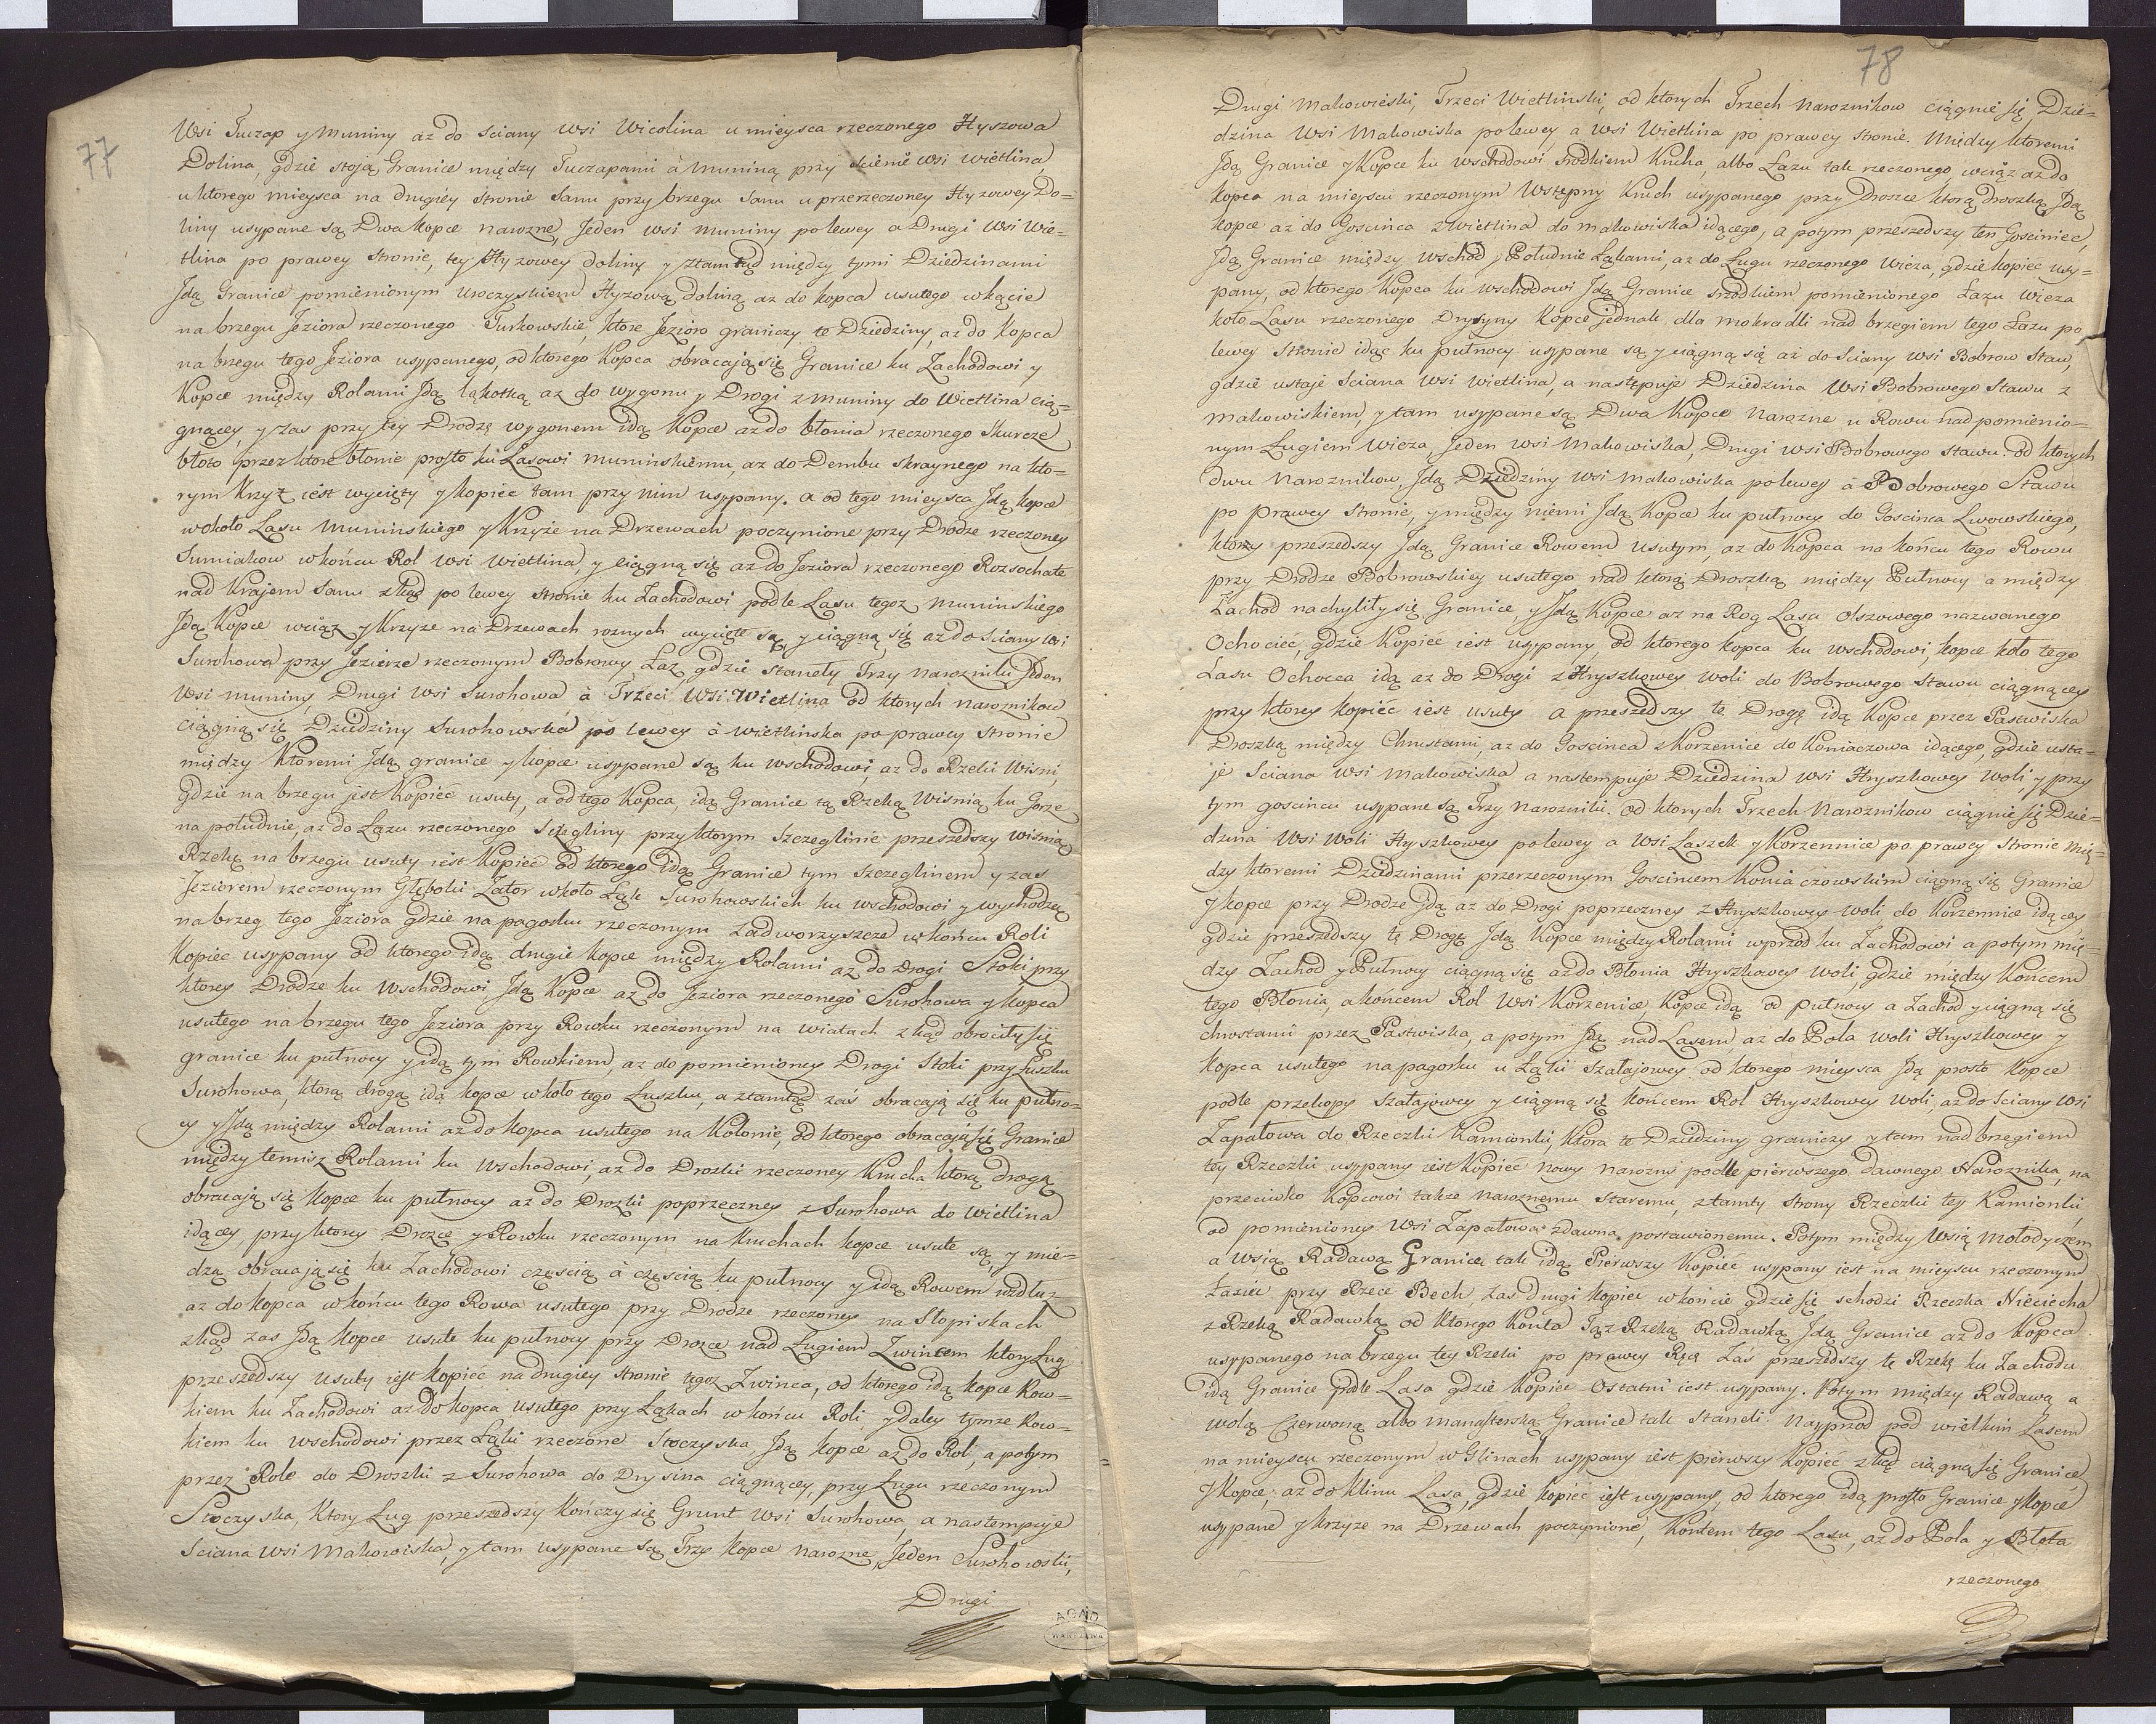 77
Wsi Tuczap y Muniny aż do sciany wsi Wicolina u mieysca rzeczonego Hyszowa
Dolina, gdzie stoją Granice między Tuczapami à Muniną przy scienie wsi Wietlina,
u ktorego mieysca na drugiéy stronie Sanu przy brzegu Sanu u przerzeczoney Hyzowey Do=
liny usypane są Dwa kopce narozne, Jeden wsi Muniny po lewey a Drugi wsi Wie=
tlina po prawey stronie, tey Hyzowey doliny y ztamtąd między tymi Dziedzinami
Jdą Granice pomienionym uroczyskiem Hyzową doliną aż do kopca usutego w kącie
na brzegu Jeziora rzeczonego Turkowskie, ktore Jezioro graniczy te Dziedziny, aż do Kopca
na brzegu tego Jeziora usypanego, od ktorego Kopca obracają się Granice ku Zachodowi y
Kopce między Rolami Jdą łąkotką aż do wygonu y Drogi z Muniny do Wietlina cią=
gnącey, y zas przy tey Drodze wygonem idą Kopce aż do błonia rzeczonego Skurcze
błoto, przez ktore błonie prosto ku Lasowi Muninskiemu, aż do Dembu skraynego na kto=
rym Krzyż iest wycięty y kopiec tam przy nim usypany. a od tego mieysca Jdą kopce
wokoło Lasu Muninskiego y Krzyże na Drzewach poczynione przy Drodze rzeczoney
Sumiakow w końcu Rol wsi Wietlina, y ciągną się aż do Jeziora rzeczonego Rozsochate
nad Krajem Sanu zkąd po lewey stronie ku Zachodowi podle Lasu tegoz Muninskiego
Jdą Kopce wciąz y Krzyze na Drzewach roznych wycięte są, y ciągną się aż do sciany wsi
Surohowa przy Jezierze rzeczonym Bobrowy Łaz, gdzie stanęły Trzy narozniki Jeden
wsi Muniny, Drugi wsi Surohowa à Trzeci wsi Wietlina od ktorych naroznikow
ciągną się Dziedziny Surohowska po lewey à Wietlinska po prawey stronie
między Ktoremi Jdą granice y kopce usypane są ku wschodowi, aż do Rzeki Wiśni,
gdzie na brzegu jest Kopiec usuty, a od tego Kopca, idą Granice tą Rzeką Wisnią ku Gorze
na południe, aż do Łazu rzeczonego Sczegliny przy ktorym Szczeglinie przeszedszy Wisnią
Rzekę na brzegu usuty iest Kopiec od ktorego idą Granice tym Szczeglinem y zas
Jeziorem rzeczonym Głęboki Zator wkoło Łąk Surohowskich ku wschodowi y wychodzą
na brzeg tego Jeziora gdzie na pagorku rzeczonym Zadworzyszcze w końcu Roli
Kopiec usypany od ktorego idą drugie kopce między Rolami aż do Drogi Stoki przy
ktorey Drodze ku Wschodowi Jdą Kopce aż do Jeziora rzeczonego Surohowa y kopca
usutego na brzegu tego Jeziora przy Rowku rzeczonym na Wiatach zkąd obrociły się
granice ku pułnocy y idą tym Rowkiem, aż do pomienioney Drogi Stoki przy Łuszku
Surohowa, ktorą drogą idą kopce wkoło tego Łuszku, a ztamtąd zas obracają się ku pułno=
cy y Jdą między Rolami aż do kopca usutego na Kołonie, od ktorego obracają się Granice
między temisz Rolami ku Wschodowi, aż do Drozki rzeczoney Krucha ktorą drogą
obracają się kopce ku pułnocy aż do Drozki poprzeczney z Surohowa do Wietlina
idącey, przy ktorey Drozce y Rowku rzeczonym na Kruchach kopce usute są y mie=
dzą obracają się ku Zachodowi częscią à częscią ku pułnocy y idą Rowem wzdłuz
aż do kopca w końcu tego Rowa usutego przy Drodze rzeczoney na Stopiskach
zkąd zas Jdą kopce usute ku pułnocy przy Drozce nad Ługiem Zwincem ktory Ług
przeszedszy usuty iest kopiec na drugiey stronie tegoz Zwinca, od ktorego idą kopce Row=
kiem ku Zachodowi aż do kopca usutego przy Łąkach w końcu Roli y daley tymze Row=
kiem ku wschodowi przez Łąki rzeczone Stoczyska Jdą kopce aż do Rol, a potym
przez Role do Droszki z Surohowa do Drysina ciągnącey, przy Ługu rzeczonym
Stoczyska, Ktory Ług przeszedszy kończy się Grunt wsi Surohowa, a nastempuje
sciana wsi Makowiska, y tam usypane są Trzy kopce narozne, Jeden Surohowski,
Drugi
AGAD
WARSZAWA
78
Drugi Makowieski, Trzeci Wietlinski, od ktorych Trzech naroznikow ciągnie się Dzie=
dzina wsi Makowiska po lewey a wsi Wietlina po prawey stronie. Między ktoremi
Jdą Granice y Kopce ku wschodowi srodkiem Krucha, albo Łazu tak rzeczonego, wciąz aż do
kopca na mieyscu rzeczonym Wstępny Kruch usypanego przy Drozce ktorą droszką Jdą
kopce aż do Goscinca z Wietlina do Makowiska idącego, a potym przeszedszy ten Gosciniec,
Jdą Granice między wschod y Południe Łąkami, aż do Ługu rzeczonego Wicza, gdzie kopiec usy=
pany, od ktorego Kopca ku wschodowi Jdą Granice srzodkiem pomienionego Łazu Wicza
koło Lasu rzeczonego Drysyny kopce jednak dla mokradli nad brzegiem tego Łazu po
lewey stronie idąc ku pułnocy usypane są y ciągną się aż do sciany wsi Bobrow Staw,
gdzie ustaje sciana wsi Wietlina, a następuje Dziedzina wsi Bobrowego Stawu z
Makowiskiem, y tam usypane są Dwa Kopce narozne u Rowu nad pomienio=
nym Ługiem Wicza Jeden wsi Makowiska, Drugi wsi Bobrowego Stawu. od ktorych
dwu naroznikow, Jdą Dziedziny wsi Makowiska po lewey à Bobrowego Stawu
po prawey stronie, y między niemi Jdą Kopce ku pułnocy do Goscinca Lwowskiego,
ktory przeszedszy Jdą Granice Rowem usutym, aż do Kopca na końcu tego Rowu
przy Drodze Bobrowskiey usutego nad ktorą Droszką między Pułnocy a między
Zachod nachyliły się Granice, y Jdą Kopce aż na Rog Lasu Olszowego nazwanego
Ochociec, gdzie Kopiec iest usypany, od ktorego kopca ku wschodowi, kopce koło tego
Lasu Ochocca idą aż do Drogi z Hryszkowey Woli do Bobrowego Stawu ciągnącey
przy ktorey kopiec iest usuty a przeszedszy tę Drogę idą Kopce przez Pastwiska
Droszką między Chrustami, aż do Goscinca z Korzenice do Koniaczowa idącego, gdzie usta=
je sciana wsi Makowiska a nastempuje Dziedzina wsi Hryszkowey Woli, y przy
tym goscincu usypane są Trzy narozniki. od ktorych Trzech naroznikow ciągnie się Dzie=
dzina wsi Woli Hryszkowey po lewey a wsi Laszek y Korzennice po prawey stronie mię=
dzy ktoremi Dziedzinami przerzeczonym Goscincem Koniaczowskim ciągną się Granice
y kopce przy Drodze Jdą aż do Drogi poprzeczney z Hryszkowey Woli do Korzennice idącey
gdzie przeszedszy tę Drogę Jdą Kopce między Rolami wprzod ku Zachodowi a potym mię=
dzy Zachod y Pułnocy ciągną się aż do Błonia Hryszkowey Woli, gdzie między Końcem
tego Błonia, a końcem Rol wsi Korzenice, Kopce idą od pułnocy a Zachod y ciągną się
chrostami przez Pastwiska, a potym Jdą nad Lasem, aż do Pola Woli Hryszkowey y
kopca usutego na pagorku u Łąki Szałajowey od ktorego mieysca Jdą prosto kopce
podle przekopy Szałajowey y ciągną się końcem Rol Hryszkowey Woli, aż do sciany wsi
Zapałowa do Rzeczki Kamionki, Ktora te Dziedziny graniczy y tam nad brzegiem
tey Rzeczki usypany iest Kopiec nowy narozny podle pierwszego dawnego Naroznika, na
przeciwko Kopcowi takze naroznemu staremu, z tamty strony Rzeczki tey Kamionki,
od pomienioney wsi Zapałowa zdawna postawionemu. Potym między Wsią Mołodyczem
a Wsią Radawą Granice tak idą. Pierwszy Kopiec usypany iest na mieyscu rzeczonym
Łaziec przy Rzece Bech, zas drugi kopiec w końcie gdzie się schodzi Rzeczka Nieciecha
z Rzeką Radawką od ktorego Konta Tąz Rzeką Radawką Jdą Granice aż do kopca
usypanego na brzegu tey Rzeki po prawey Ręce Zaś przeszedszy tę Rzekę ku Zachodu
idą Granice podle Lasa gdzie Kopiec Ostatni iest usypany. Potym między Radawą a
Wolą Czerwoną albo Manasterską Granice tak staneli. Nayprzod pod wielkim Lasem
na mieyscu rzeczonym w Glinach usypany iest pierwszy Kopiec zkąd ciągną się Granice,
y Kopce, aż do klinu Lasa, gdzie kopiec iest usypany, od ktorego idą prosto Granice y kopce
usypane y krzyze na Drzewach poczynione, Kontem tego Lasu, aż do Pola y Błota
rzeczonego